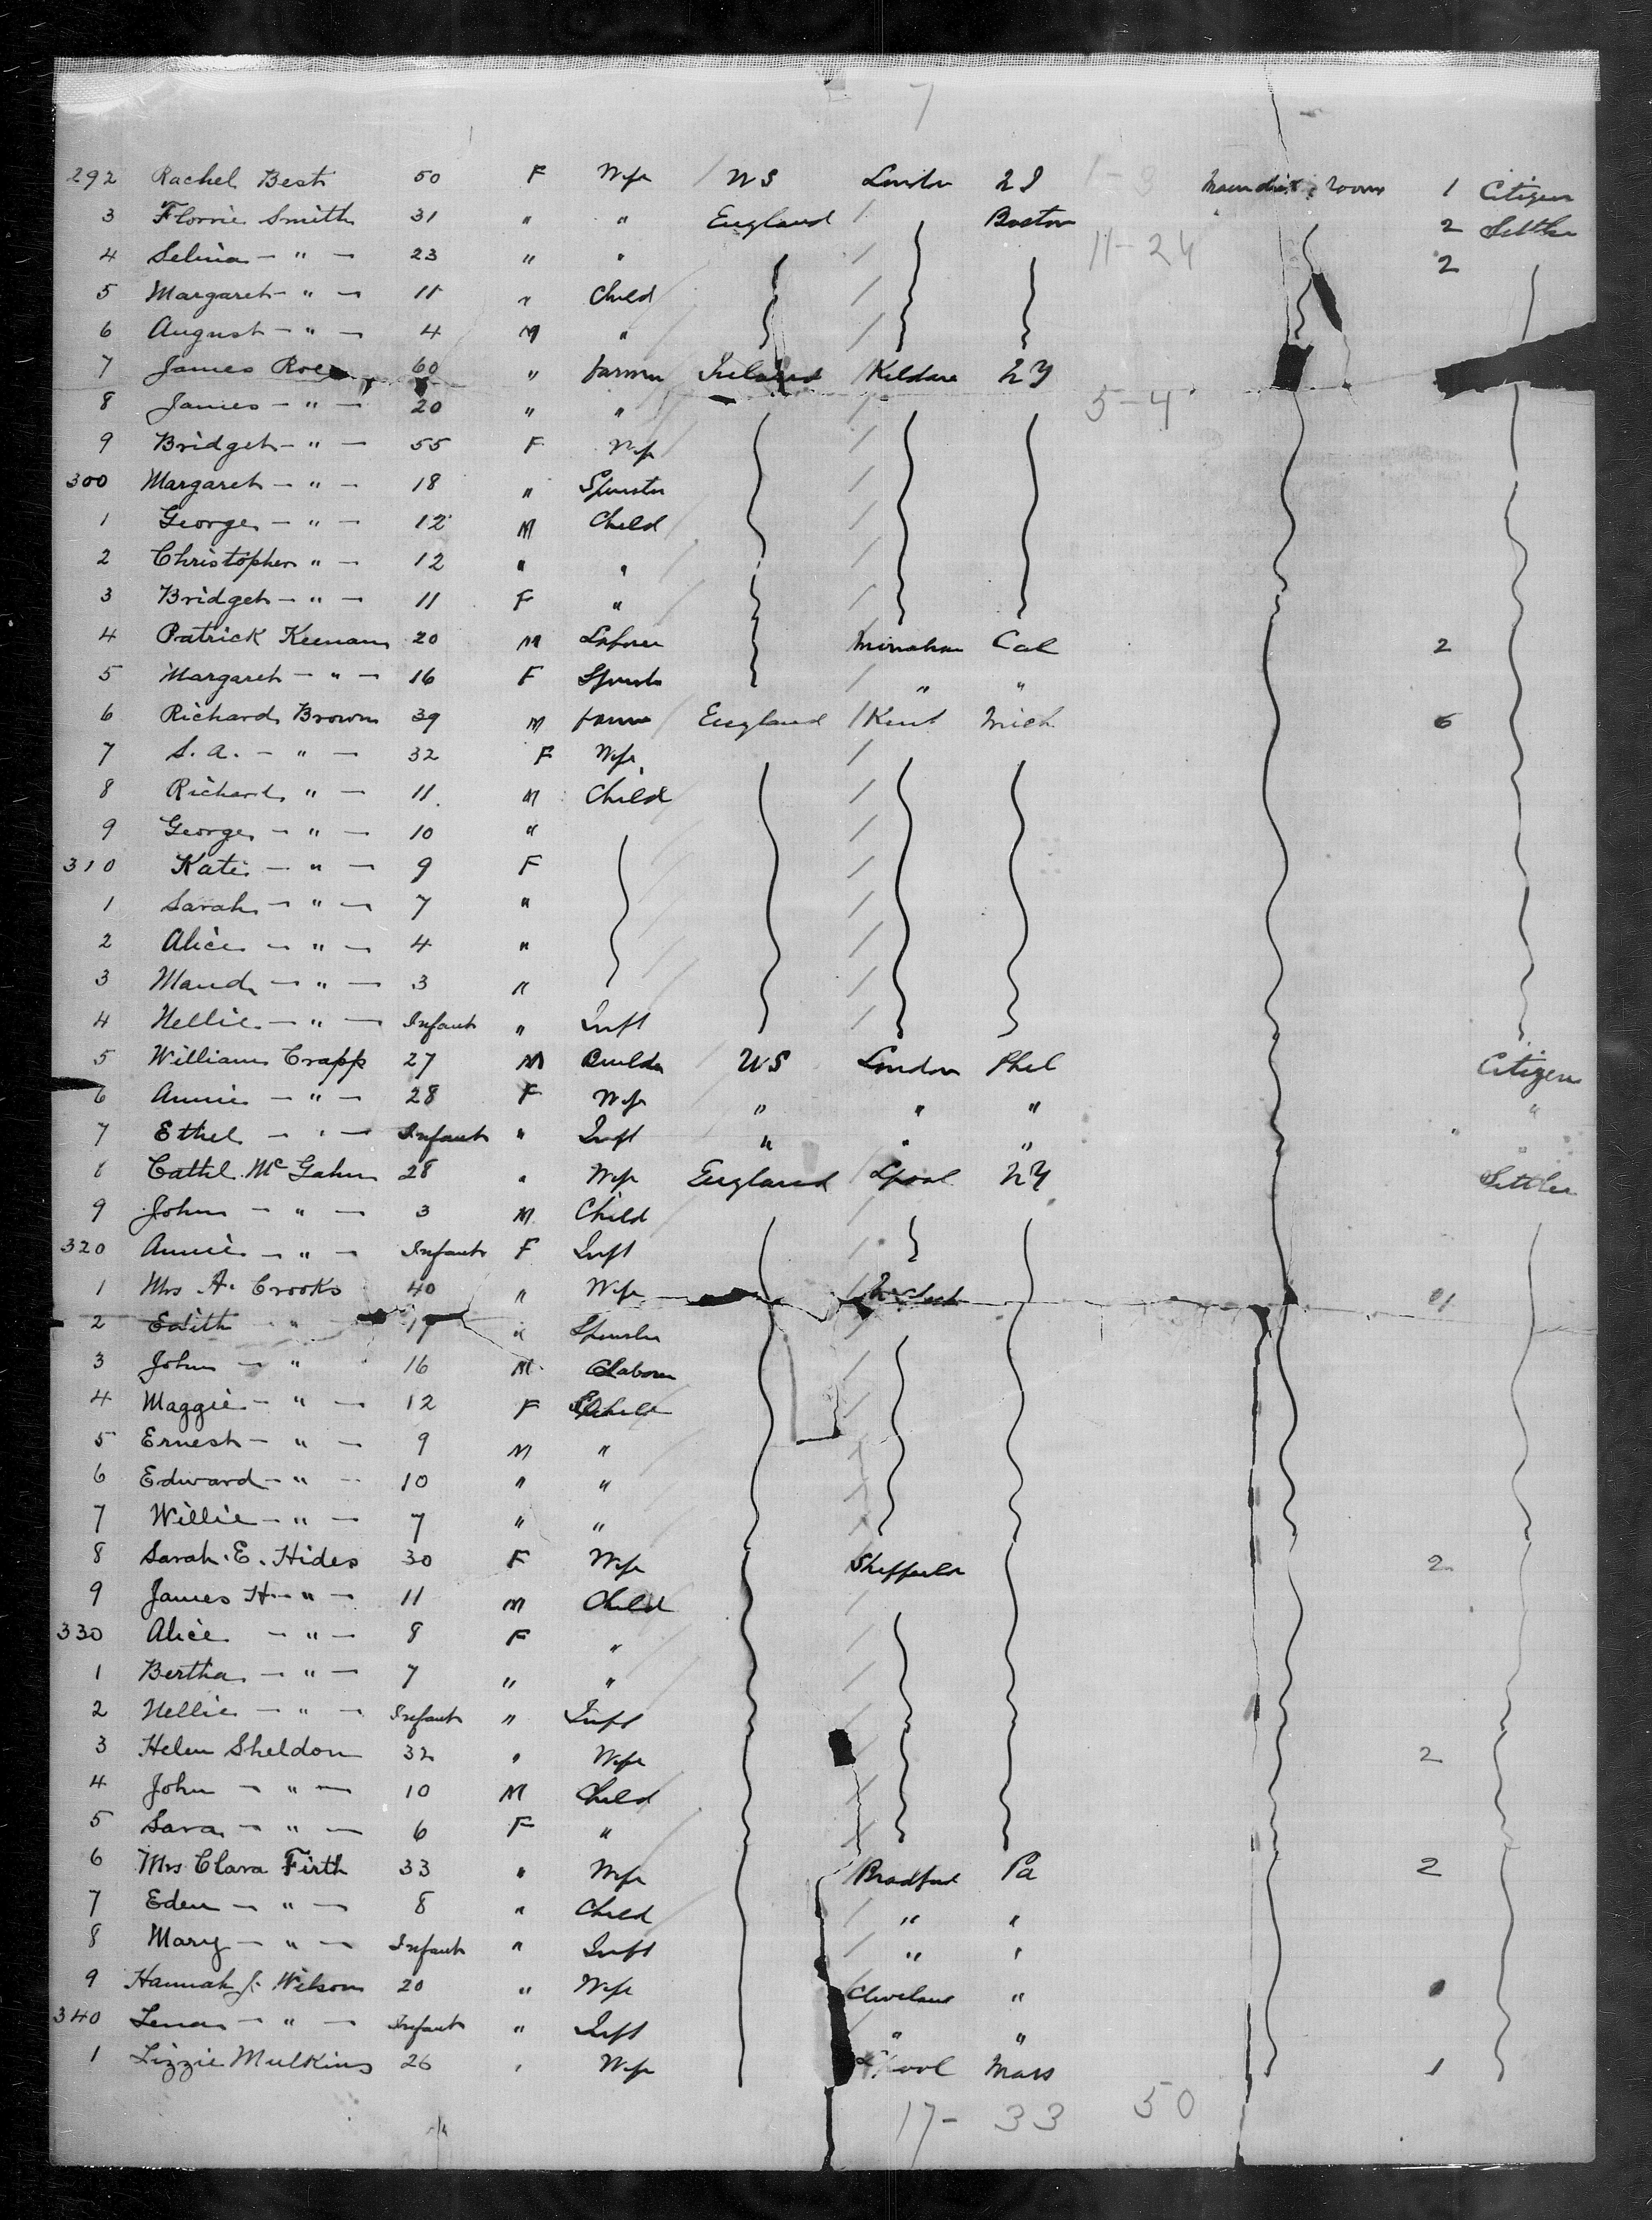 7
292 Rachel Best 50 F Wife / US London NY 1-3 Main deck rooms 1 Citizen
3 Florrie Smith 31 " " England / Boston 2 Settler
4 Selina - " - 23 " " / 11-24 2
5 Margaret - " - 11 " Child /
6 August - " - 4 M " /
7 James Roe 60 " farmer Ireland / Kildare NY
8 James - " - 20 " " / 5-4
9 Bridget - " - 55 F Wife /
300 Margaret - " - 18 " Spinster /
1 George - " - 12 M Child /
2 Christopher " - 12 " " /
3 Bridget - " - 11 F " /
4 Patrick Keenan 20 M Laborer Cal 2
5 Margaret - " - 16 F Spinster / " "
6 Richard Brown 39 M farmer England / Kent Mich 6
7 S. A. - " - 32 F Wife /
8 Richard " - 11 M Child /
9 George - " - 10 " /
310 Katie - " - 9 F /
1 Sarah - " - 7 " /
2 Alice - " - 4 " /
3 Maud - " - 3 " /
4 Nellie - " - Infant " Inft /
5 William Crapp 27 M Builder / US London Phil Citizen
6 Annie - " - 28 F Wife " " " "
7 Ethel - " - Infant " Inft " " " "
8 Cathl. McGahn 28 " Wife England / Lpool NY Settler
9 John - " - 3 M Child /
320 Annie - " - Infant F Inft /
1 Mrs A. Crooks 40 " Wife / 11
2 Edith " 17 " Spinster /
3 John - " 16 M Laborer /
4 Maggie - " - 12 F Child /
5 Ernest - " - 9 M " /
6 Edward - " - 10 " " /
7 Willie - " - 7 " " /
8 Sarah. E. Hides 30 F Wife Sheffield 2
9 James H - " - 11 M Child /
330 Alice - " - 8 F " /
1 Bertha - " - 7 " " /
2 Nellie - " - Infant " Inft /
3 Helen Sheldon 32 " Wife 2
4 John - " - 10 M Child /
5 Sara - " - 6 F " /
6 Mrs Clara Firth 33 " Wife / Bradford Pa 2
7 Eden - " - 8 " Child / " "
8 Mary - " - Infant " Inft / " "
9 Hannah J. Wilson 20 " Wife Cleveland "
340 Lena - " - Infant " Inft " "
1 Lizzie Mulkins 26 " Wife Mass 1
17- 33 50